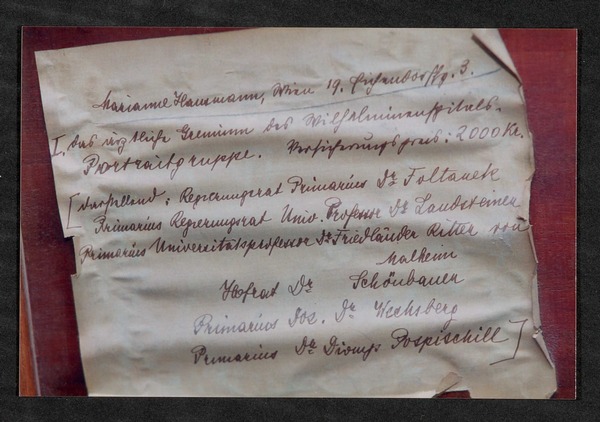 Marianne Hausmann, Wien 19. Eichendorffg. 3.
I. Das ärztliche Gremium des Wilhelminenspitals.
Portraitgruppe. Versicherungspreis: 2000 Kr.
[darstellend: Regierungsrat Primarius Dr Foltanek
Primarius Regierungsrat Univ. Professor Dr Landsteiner
Primarius Universitätsprofessor Dr Friedländer Ritter von
Malheim
Hofrat Dr Schönbauer
Primarius Doz. Dr Wechsberg
Primarius Dr Dionys Pospischill]